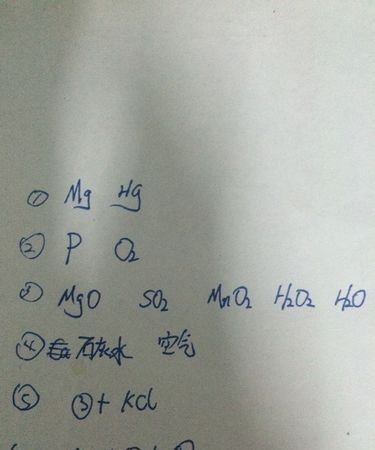 ① Mg Hg
② P O₂
③ MgO SO₂ MnO₂ H₂O₂ H₂O
④ 石灰水 空气
⑤ ③+ KCl